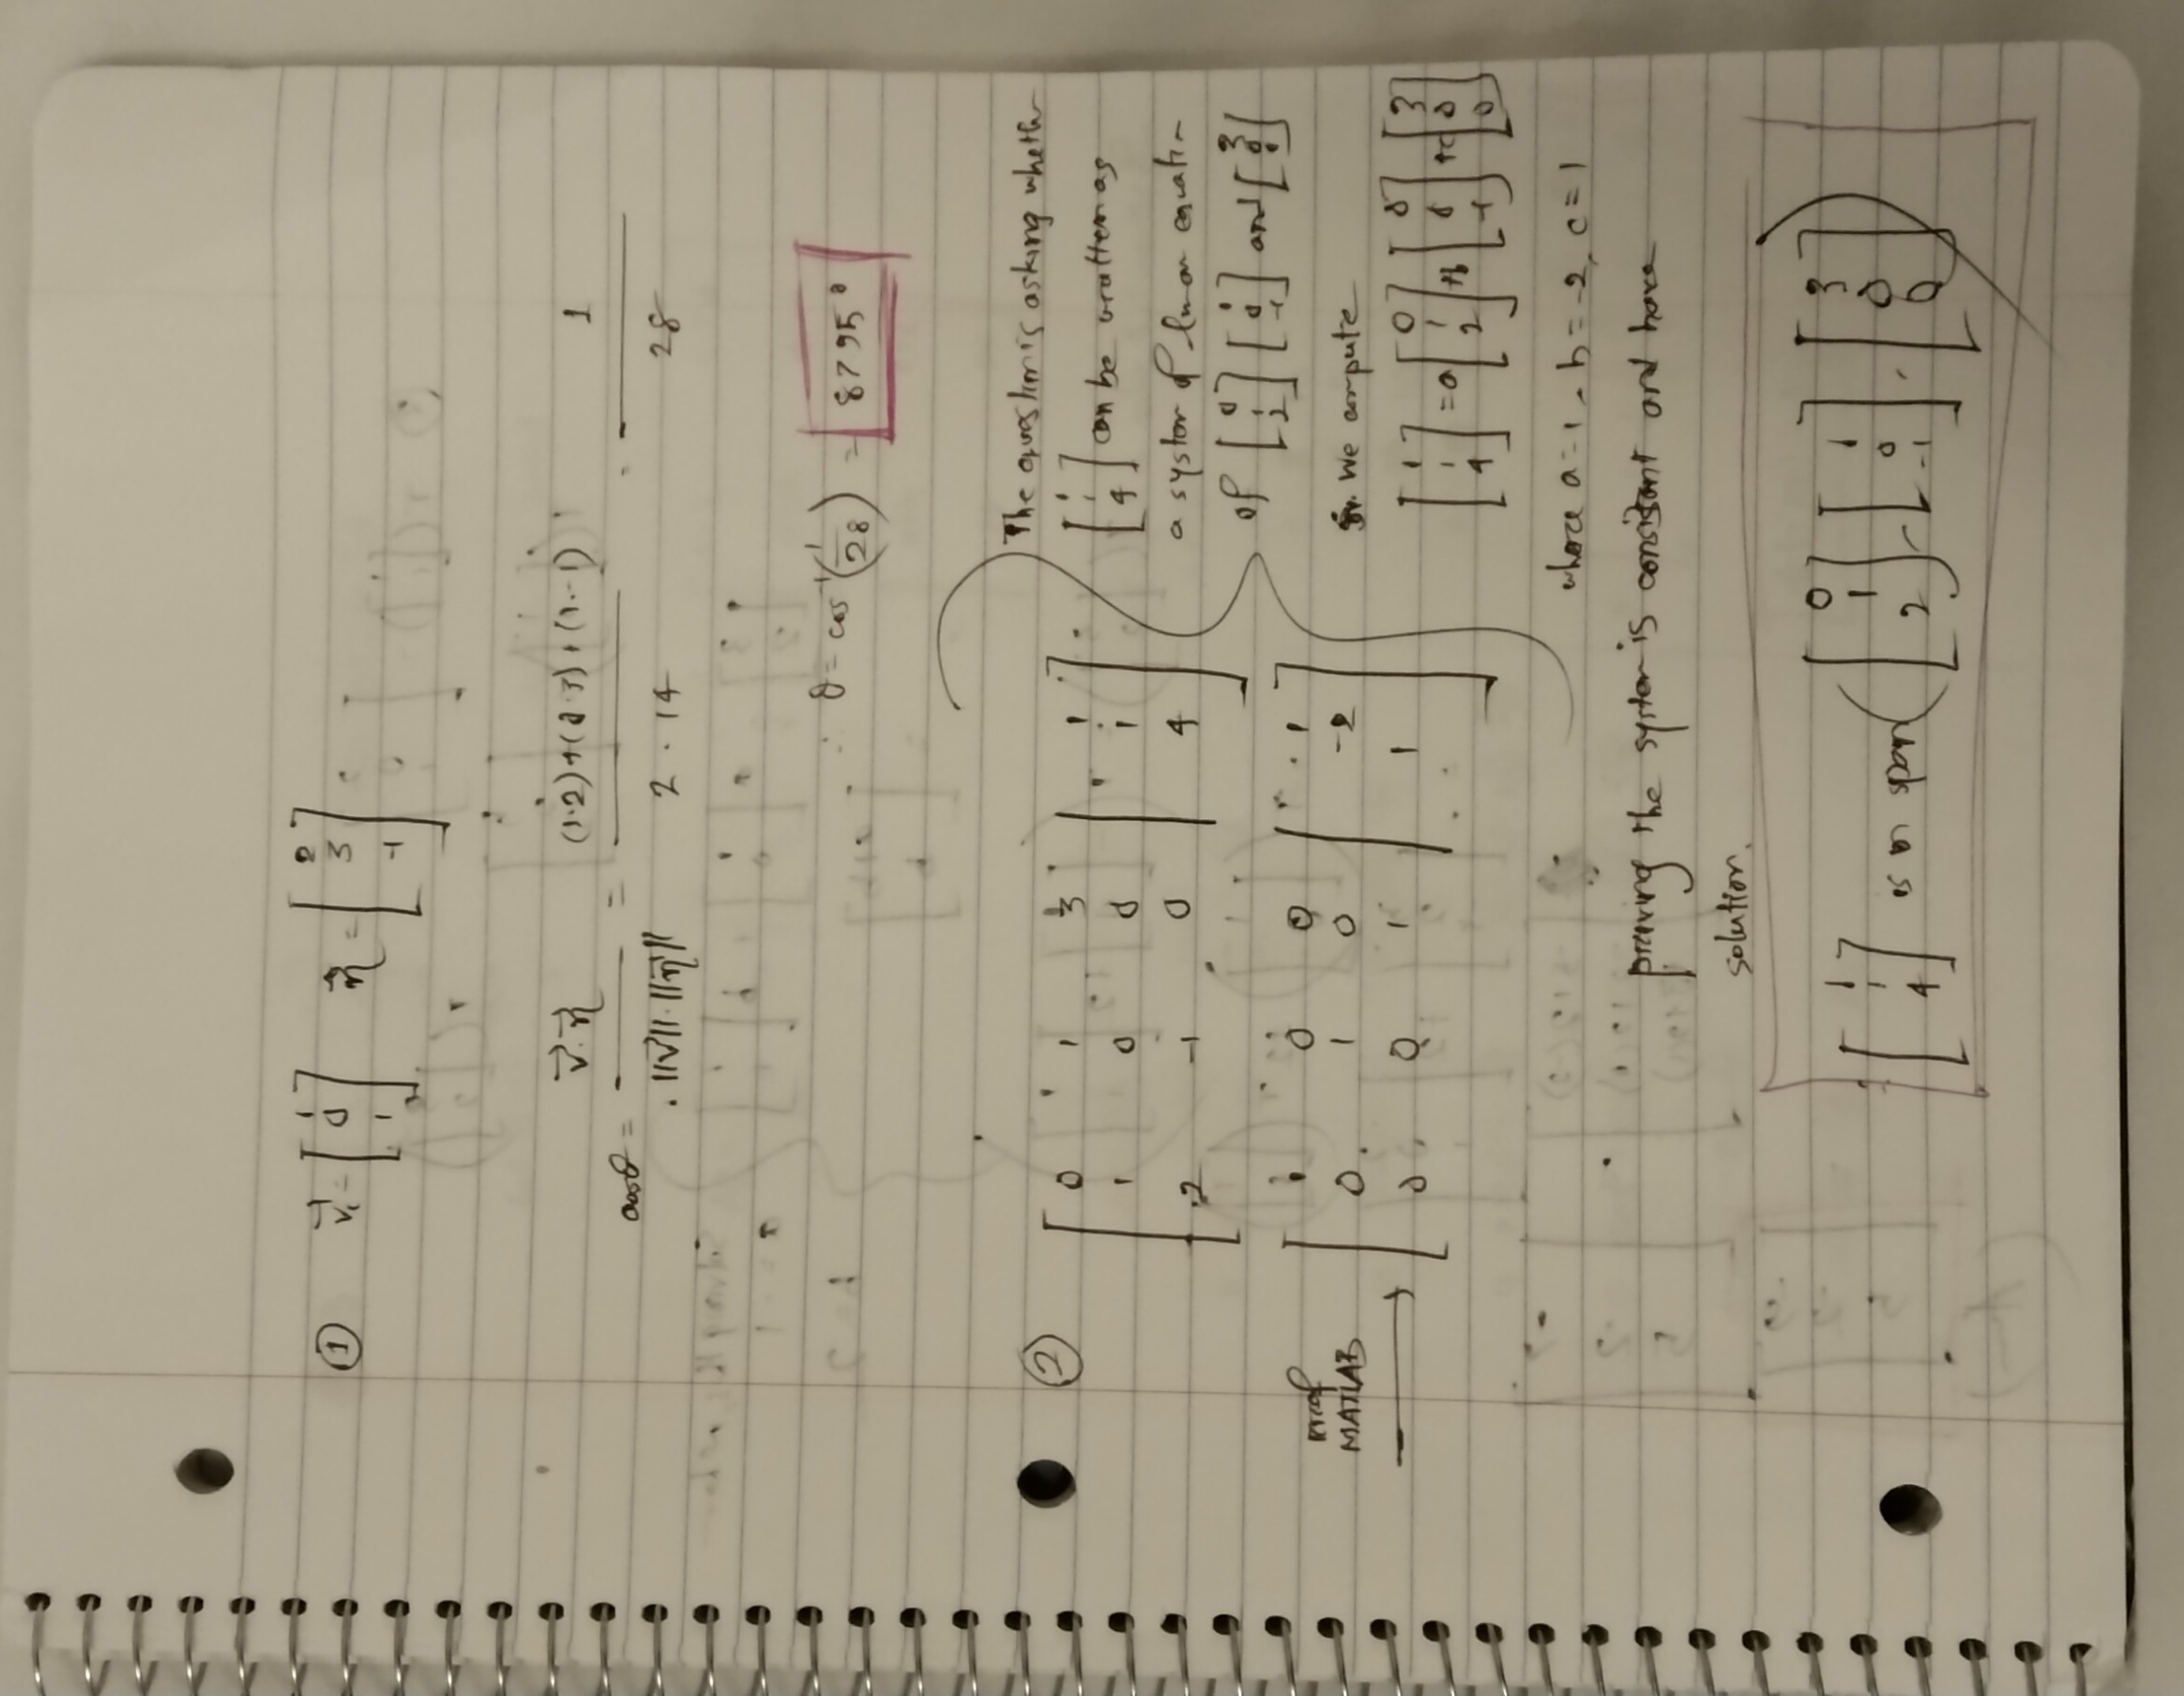 ① v⃗₁ = [1 0 1] n⃗ = [2 3 -1]
cosθ = v⃗·n⃗ / ||v⃗||·||n⃗|| = (1·2)+(0·3)+(1·-1) / 2·14 = 1 / 28
∴ θ = cos⁻¹(1/28) = 8795°
② [0 1 3 | 1
1 0 0 | 1
2 -1 0 | 4]
rref
MATLAB
→
[1 0 0 | 1
0 1 0 | -2
0 0 1 | 1]
The question is asking whether
[1 1 4] can be written as
a system of linear equation
of [0 1 2] [1 0 -1] and [3 0 0]
We compute
[1 1 4] = a[0 1 2] + b[0 0 -1] + c[3 0 0]
where a = 1, b = -2, c = 1
proving the system is consistant and have
solution.
[1 1 4] is in span([0 1 2], [1 0 -1], [3 0 0])